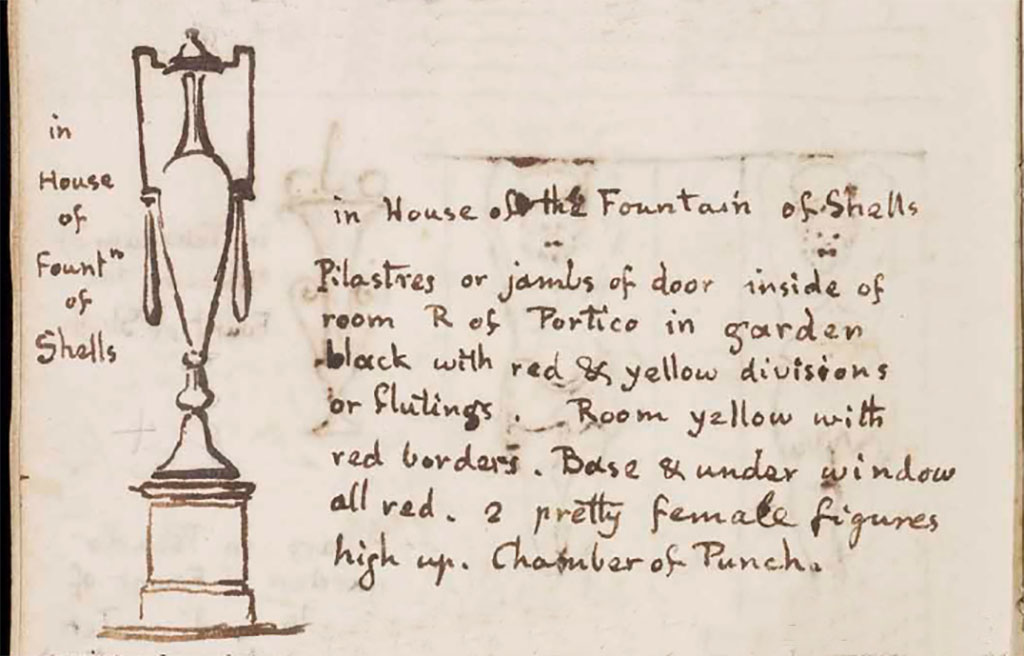 in
House
of
Fountⁿ
of
Shells
in House of the Fountain of Shells
Pilastres or jambs of door inside of
room R of Portico in garden
black with red & yellow divisions
or flutings. Room yellow with
red borders. Base & under window
all red. 2 pretty female figures
high up. Chamber of Punch.